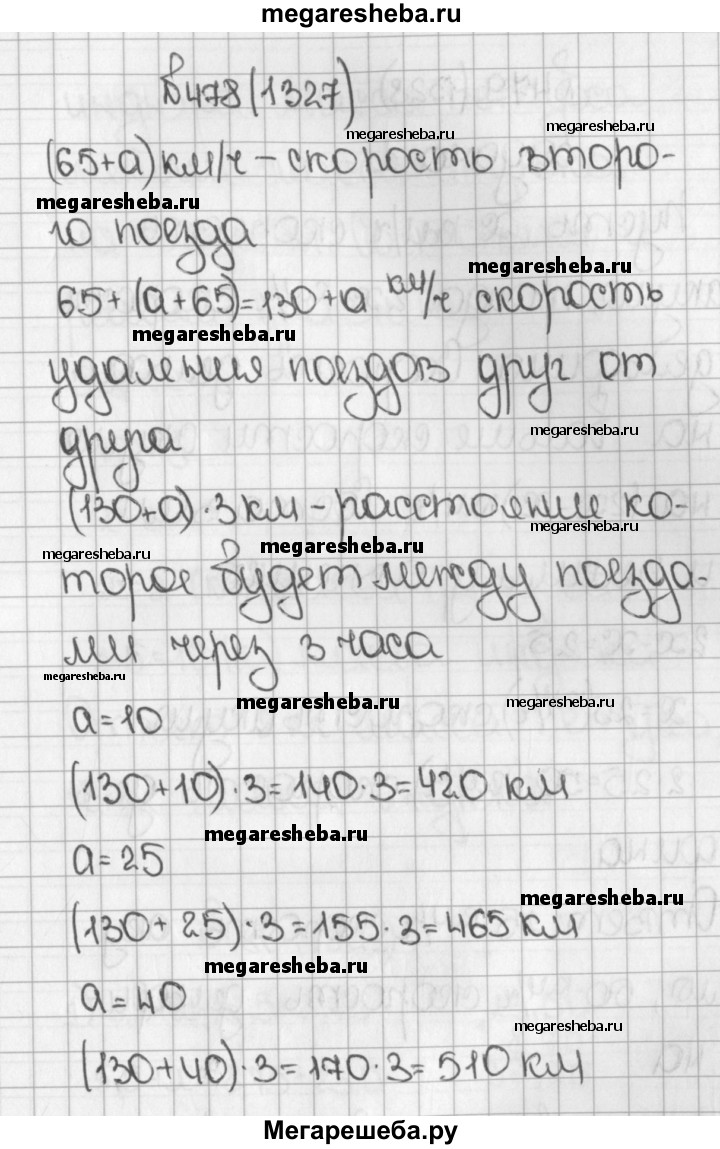 megaresheba.ru
№478(1327)
megaresheba.ru
megaresheba.ru
(65+а)км/ч – скорость второ-
megaresheba.ru
го поезда
megaresheba.ru
65+(а+65)=130+а км/ч скорость
megaresheba.ru
удаления поездов друг от
друга
megaresheba.ru
(130+а)·3км – расстояние ко-
megaresheba.ru
megaresheba.ru
megaresheba.ru
торое будет между поезда-
ми через 3 часа
megaresheba.ru
megaresheba.ru
megaresheba.ru
а=10
(130+10)·3=140·3=420 км
megaresheba.ru
а=25
megaresheba.ru
(130+25)·3=155·3=465 км
megaresheba.ru
а=40
megaresheba.ru
(130+40)·3=170·3=510 км
Мегарешеба.ру